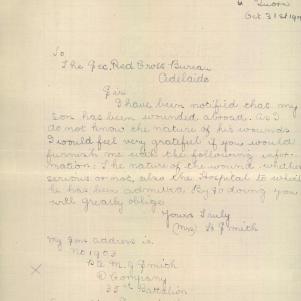 Quorn
Oct 31st 19
To
The Sec, Red Cross Bureau
Adelaide
Sir
I have been notified that my
son has been wounded abroad. As I
do not know the nature of his wounds
I would feel very grateful if you would
furnish me with the following infor-
mation: The nature of the wound whether
serious or not, also the Hospital to which
he has been admitted. By so doing you
will greatly oblige
Yours Truly
(Mrs) Smith
My Sons address is.
No 1903
Pte M. G. Smith
D Company
Battalion